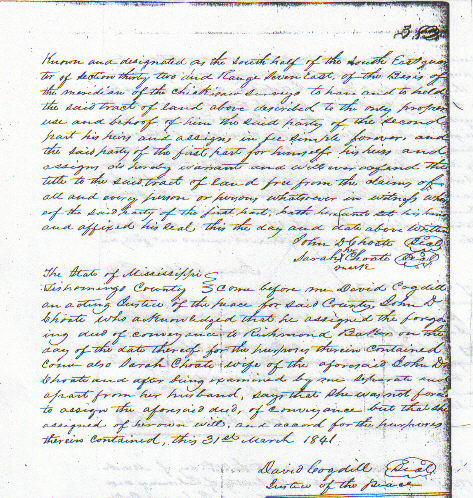 353
Known and designated as the South half of the South East quar
ter of section thirty two and Range Seven East, of the Basis of
the meridian of the Chickisaw Surveys to have and to hold
the said tract of land above described to the only proper
use and behoof of him the said party of the second
part his heirs and assigns in fee simple forever and
the said party of the first part for himself his heirs and
assigns do hereby warrant and will ever defend the
title to the said tract of land free from the claims of
all and every person or persons whatsoever in witness where
of the said party of the first part, hath hereunto set his hand
and affixed his seal this the day and date above written
John D Choate Seal
her
Sarah X Choate Seal
mark
The State of Mississippi
Tishomingo County Come before me David Cogdill
an acting Justice of the peace for said County John D
Choate who acknowledged that he assigned the forgo
ing deed of conveyance to Richmond Baker on the
day of the date thereof for the purposes therein contained
Come also Sarah Choate wife of the aforesaid John D
Choate and after being examined by me seperate and
apart from her husband, says that she was not forc
to assign the aforesaid deed, of conveyance but that she
assigned of her own will, and accord for the purposes
therein contained, this 31st March 1841
David Cogdill Seal
Justice of the peace